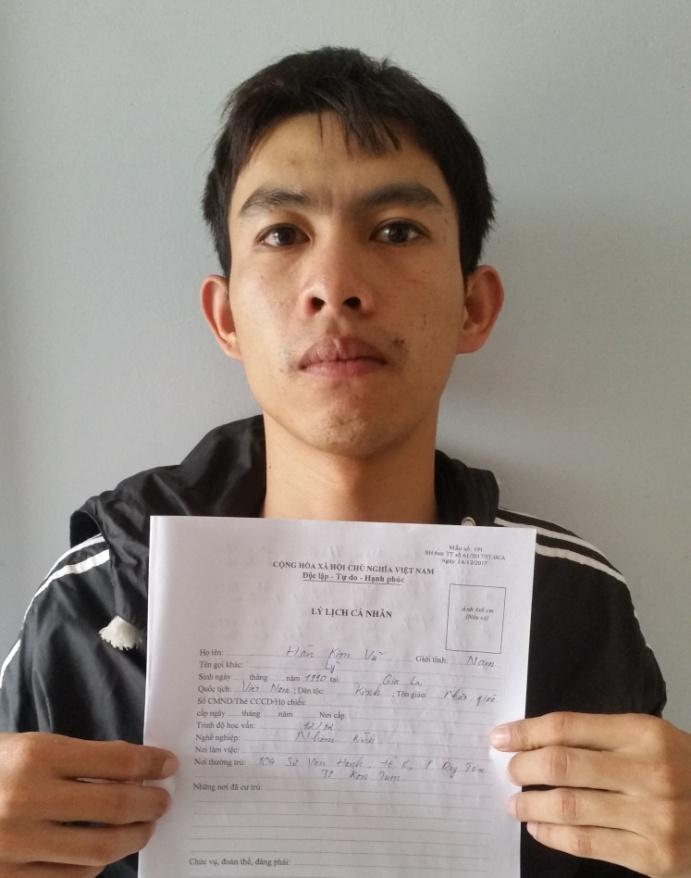 Mẫu số: 191
BH theo TT số 61/2017/TT-BCA
ngày 14/12/2017
CỘNG HÒA XÃ HỘI CHỦ NGHĨA VIỆT NAM
Độc lập - Tự do - Hạnh phúc
Ảnh 4x6 cm
LÝ LỊCH CÁ NHÂN
Họ tên: Giới tính: Nam
Tên gọi khác: Lỳ
Sinh ngày tháng năm 1990 tại: Gia La
Quốc tịch: Việt Nam; Dân tộc: Kinh; Tôn giáo:
Số CMND/Thẻ CCCD/Hộ chiếu:
cấp ngày tháng năm Nơi cấp:
Trình độ học vấn: 12/12
Nghề nghiệp:
Nơi làm việc:
Nơi thường trú: Kon Tum
Những nơi đã cư trú:
Chức vụ, đoàn thể, đảng phái: